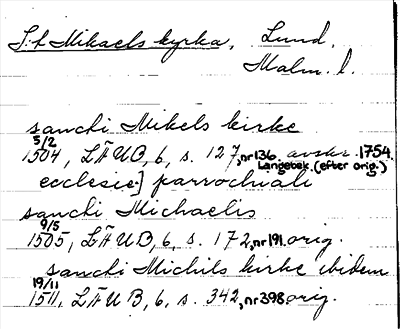 S:t Mikaels kyrka, Lund,
Malm. l.
sancti Mikels kirke
5/2 1504, LÄUB, 6, s. 127, nr 136. avskr. 1754.
Langebek. (efter orig.)
ecclesie] parrochiali
sancti Michaelis
9/5 1505, LÄUB, 6, s. 172, nr 191. orig.
sancti Michils kirke ibidem
19/11 1511, LÄUB, 6, s. 342, nr 398 orig.